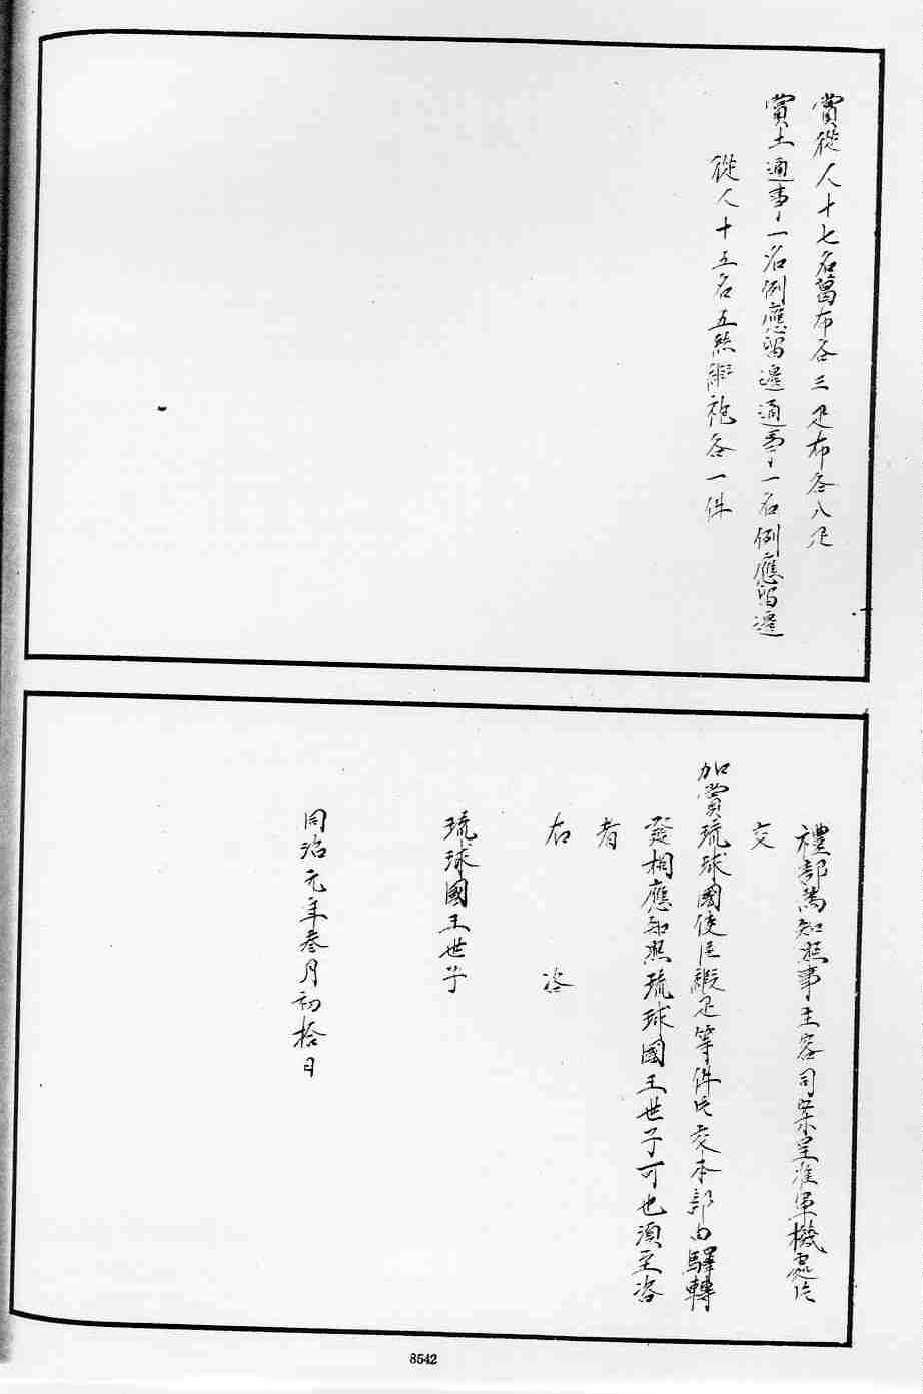 賞從人十七名蔄布各三疋布各八疋
賞土通事一名例應留邊通事一名例應留邊
從人十五名五絲緞袍各一件
禮部為知照事主客司案呈准軍機處片
交
加賞琉球國使臣緞疋等件片交本部由驛轉
發相應知照琉球國王世子可也須至咨
者
右　　咨
琉球國王世子
同治元年叁月初拾日
8542